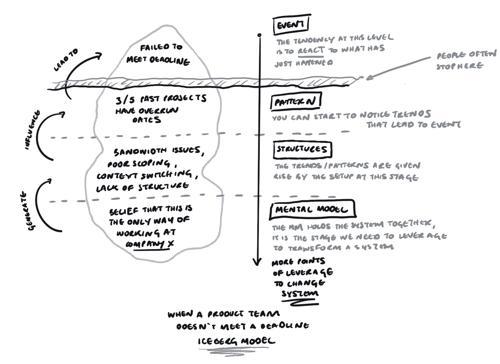 EVENT
THE TENDENCY AT THIS LEVEL
IS TO REACT TO WHAT HAS
JUST HAPPENED
FAILED TO
MEET DEADLINE
LEAD TO
PEOPLE OFTEN
STOP HERE
3/5 PAST PROJECTS
HAVE OVERRUN
DATES
PATTERN
YOU CAN START TO NOTICE TRENDS
THAT LEAD TO EVENT
INFLUENCE
BANDWIDTH ISSUES,
POOR SCOPING,
CONTEXT SWITCHING,
LACK OF STRUCTURE
STRUCTURES
THE TRENDS/PATTERNS ARE GIVEN
RISE BY THE SETUP AT THIS STAGE
GENERATE
BELIEF THAT THIS IS
THE ONLY WAY OF
WORKING AT
COMPANY X
MENTAL MODEL
THE MM HOLDS THE SYSTEM TOGETHER,
IT IS THE STAGE WE NEED TO LEVERAGE
TO TRANSFORM A SYSTEM
MORE POINTS
OF LEVERAGE
TO CHANGE
SYSTEM
WHEN A PRODUCT TEAM
DOESN'T MEET A DEADLINE
ICEBERG MODEL